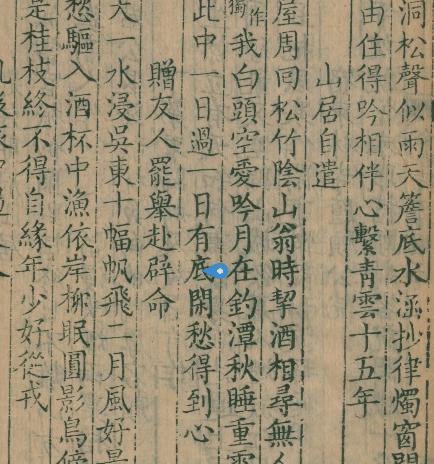 洞松聲似雨天簷底水涵抄律燭窗間
由住得吟相伴心繫青雲十五年
山居自遣
屋周回松竹陰山翁時挈酒相尋無人
獨作我白頭空愛吟月在釣潭秋睡重雲
此中一日過一日有底閑愁得到心
贈友人罷舉赴辟命
天一水浸吳東十幅帆飛二月風好景
愁驅入酒杯中漁依岸柳眠圓影鳥傍
是桂枝終不得自緣年少好從戎